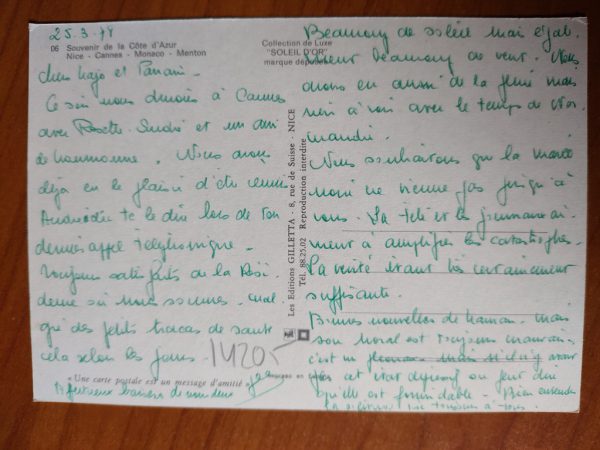 25.3.78
06 Souvenir de la Côte d'Azur
Nice - Cannes - Monaco - Menton
Collection de Luxe
"SOLEIL D'OR"
marque déposée
et
Ce soir nous dinons à Cannes
avec Rosette - André et un ami
de . Nous avons
déjà eu le plaisir d'être réunis
te le dire lors de ton
dernier appel téléphonique -
Toujours satisfaits de la Rési
dence où nous sommes - mal
gré des petits tracas de santé
cela selon les jours -
14205-
« Une carte postale est un message d'amitié »
Affectueux baisers de nous deux
Les Editions GILLETTA - 8, rue de Suisse - NICE
Tél. 88.25.02 Reproduction interdite
Beaucoup de soleil mais
beaucoup de vent. Nous
avons eu aussi de la pluie mais
rien à voir avec le temps de
Nous souhaitons que la marée
noire ne vienne pas jusqu'à
vous - La télé et les journaux ai-
ment à amplifier les catastrophes -
La vérité étant très certainement
suffisante.
Bonnes nouvelles de maman - mais
son moral est toujours mauvais -
c'est un
cet état dépressif on peut dire
qu'elle est formidable - Bien entendu